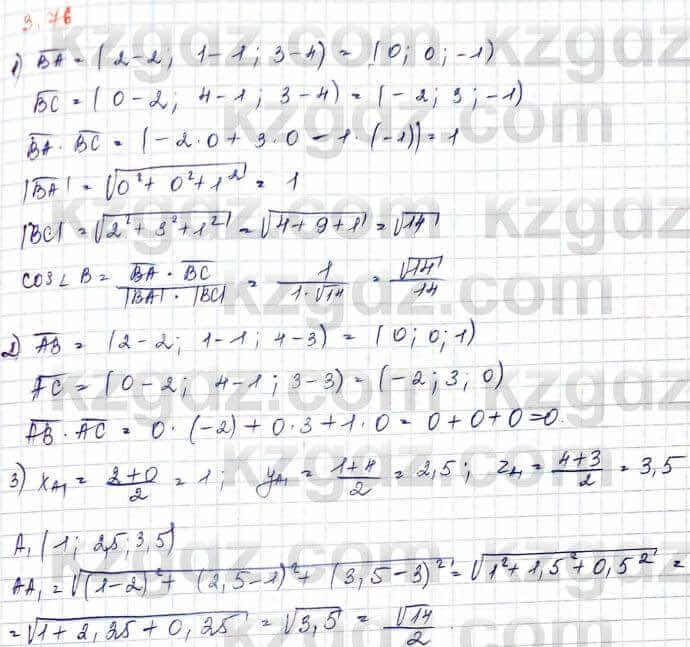 3.76
1) BA = (2-2; 1-1; 3-4) = (0; 0; -1)
BC = (0-2; 4-1; 3-4) = (-2; 3; -1)
BA · BC = (-2·0 + 3·0 - 1·(-1)) = 1
|BA| = √(0² + 0² + 1²) = 1
|BC| = √(2² + 3² + 1²) = √(4+9+1) = √14
cos∠B = (BA · BC)/(|BA| · |BC|) = 1/(1·√14) = √14/14
2) AB = (2-2; 1-1; 4-3) = (0; 0; 1)
AC = (0-2; 4-1; 3-3) = (-2; 3; 0)
AB · AC = 0·(-2) + 0·3 + 1·0 = 0+0+0=0.
3) x_A₁ = (2+0)/2 = 1; y_A₁ = (1+4)/2 = 2,5; z_A₁ = (4+3)/2 = 3,5
A₁ (1; 2,5; 3,5)
AA₁ = √((1-2)² + (2,5-1)² + (3,5-3)²) = √(1² + 1,5² + 0,5²) =
= √(1 + 2,25 + 0,25) = √3,5 = √14/2.
kzgdz.com